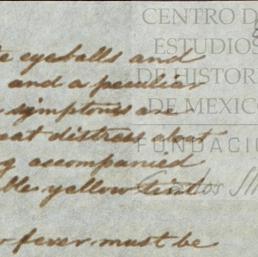 CENTRO D
ESTUDIOS
DE HISTOR
DE MEXIC
FUNDACIÓ
Carlos Sl
e eyeballs and
and a peculiar
symptoms are
eat distress about
g accompanied
ble yellow tint
fever must be